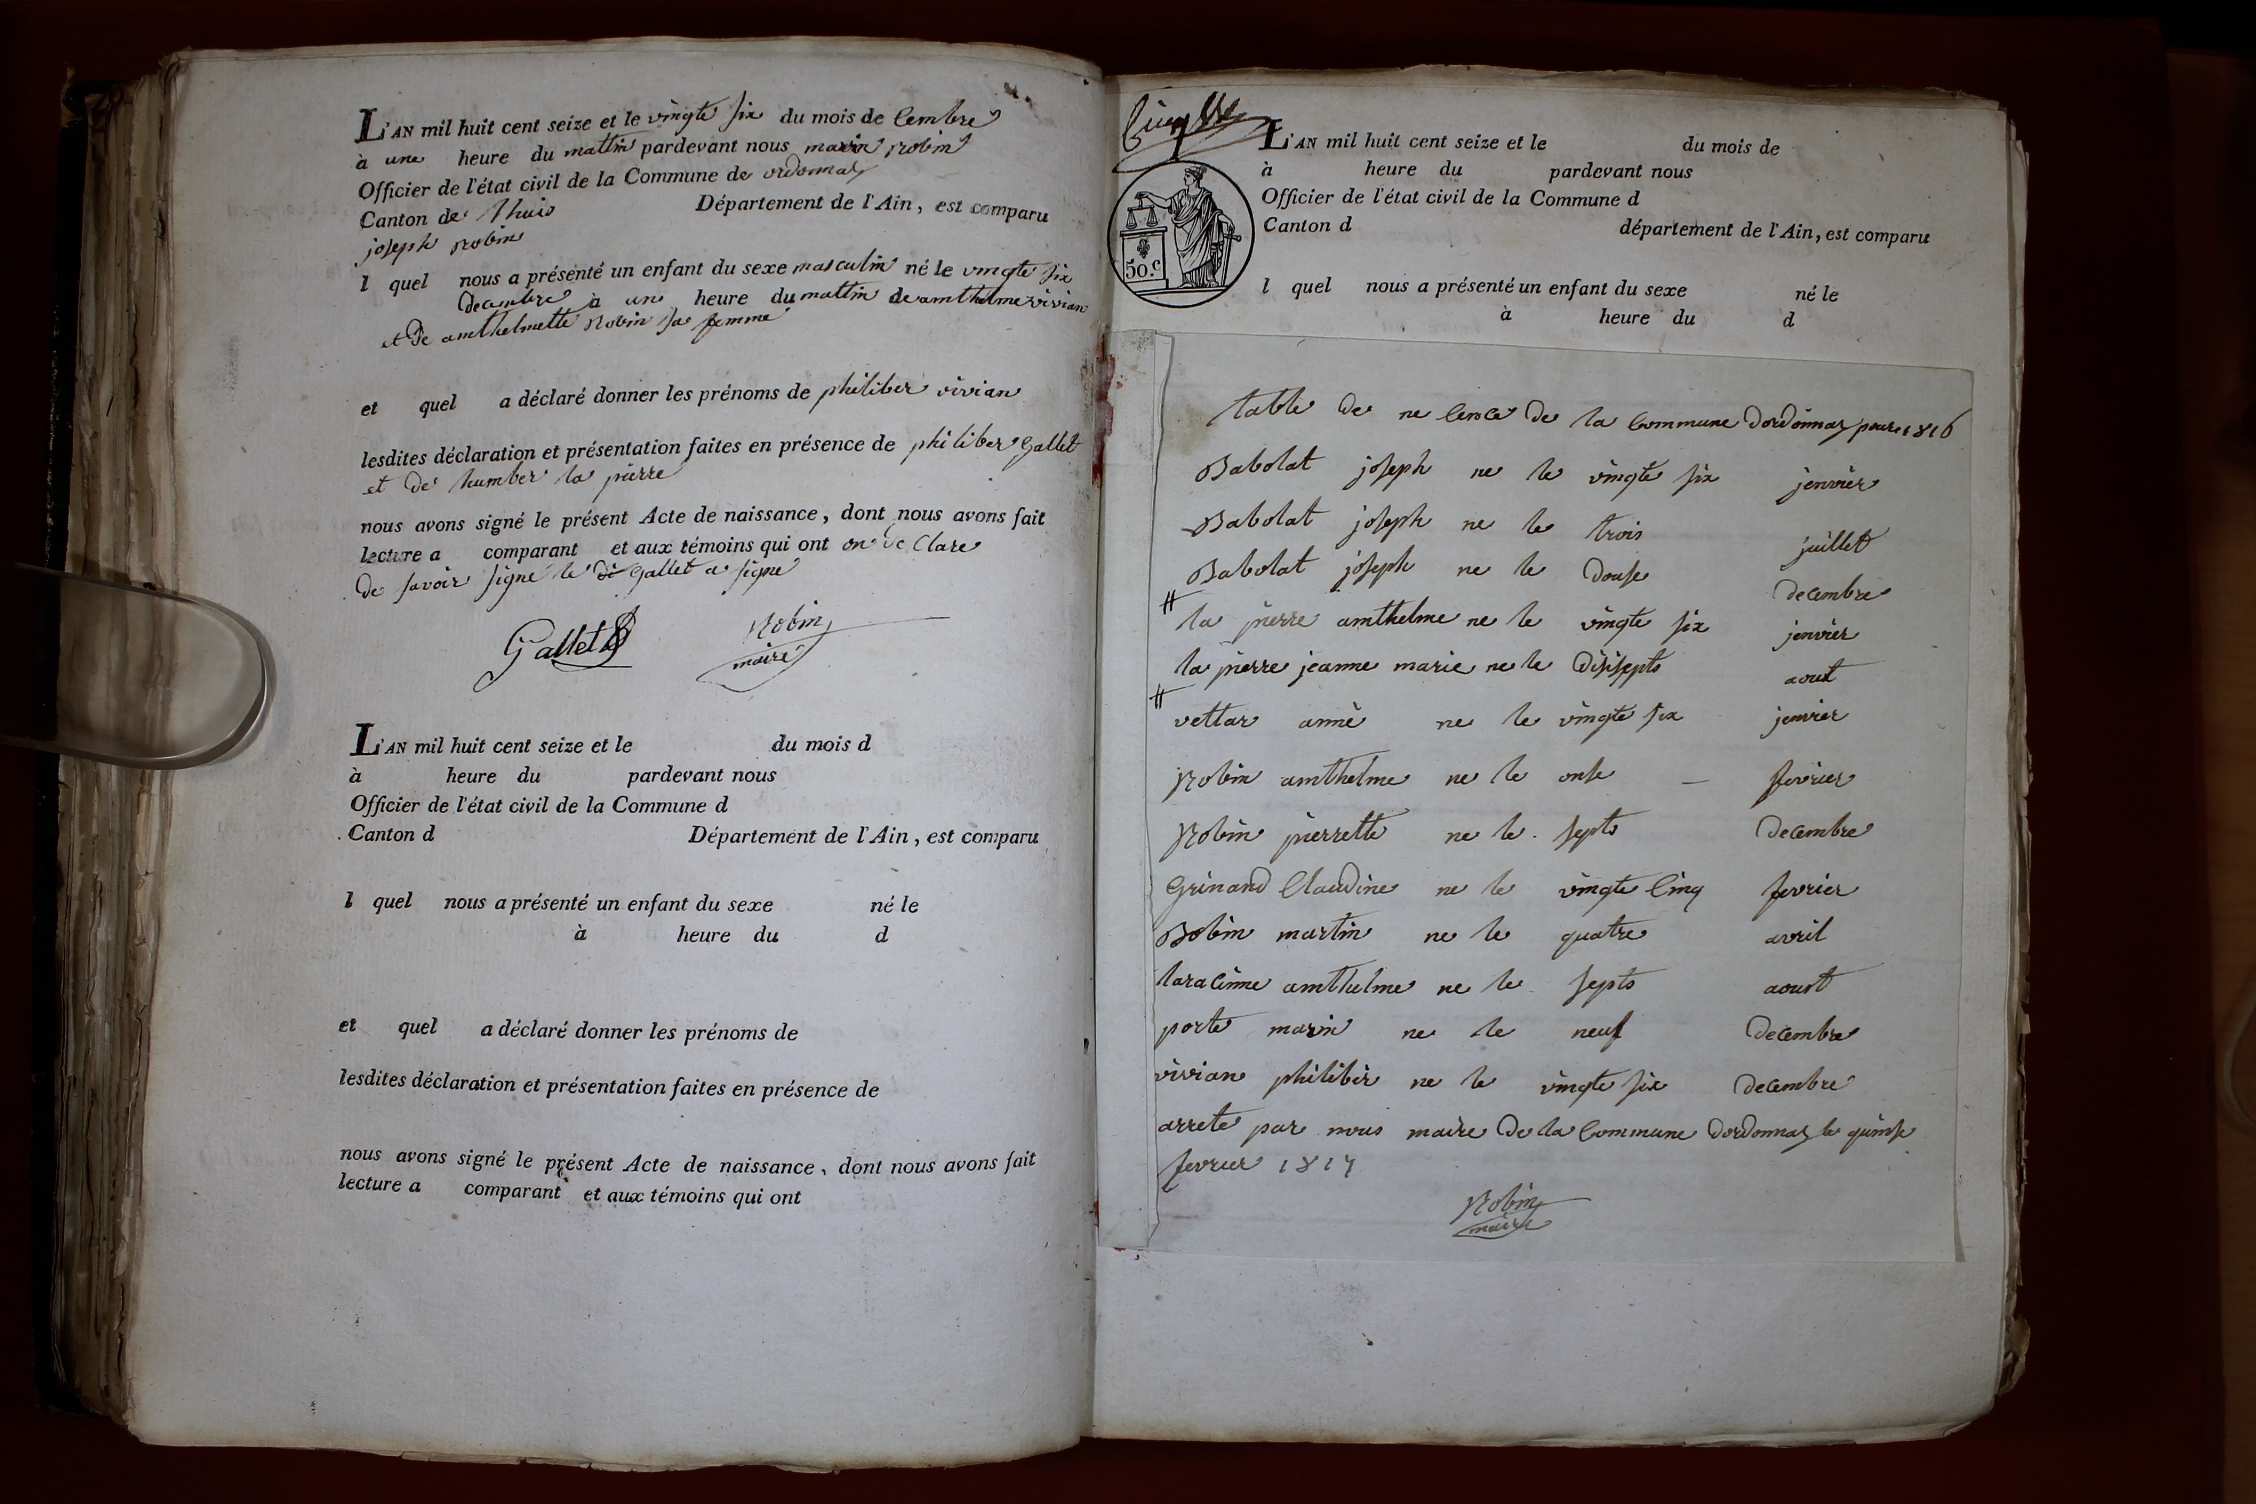 L'AN mil huit cent seize et le vingte six du mois de Cembre
à une heure du mattin pardevant nous marin Robin
Officier de l'état civil de la Commune de ordonnaz
Canton de lhuis Département de l'Ain, est comparu
joseph Robin
l quel nous a présenté un enfant du sexe masculin né le vingte six
decembre à une heure du mattin de amthelme vivian
et De amthelmette Robin sa femme
et quel a déclaré donner les prénoms de philiber vivian
lesdites déclaration et présentation faites en présence de philiber Gallet
et de humber la pierre
nous avons signé le présent Acte de naissance, dont nous avons fait
lecture a comparant et aux témoins qui ont on de Clare
de savoir signe le di Gallet a signe
Gallet Robin
maire
L'AN mil huit cent seize et le du mois d
à heure du pardevant nous
Officier de l'état civil de la Commune d
Canton d Département de l'Ain, est comparu
l quel nous a présenté un enfant du sexe né le
à heure du d
et quel a déclaré donner les prénoms de
lesdites déclaration et présentation faites en présence de
nous avons signé le présent Acte de naissance, dont nous avons fait
lecture a comparant et aux témoins qui ont
L'AN mil huit cent seize et le du mois de
à heure du pardevant nous
Officier de l'état civil de la Commune d
Canton d département de l'Ain, est comparu
50.c
l quel nous a présenté un enfant du sexe né le
à heure du d
table de ne Cence de la Commune Dordonnaz pour 1816
Babolat joseph ne le vingte six jenvier
Babolat joseph ne le trois juillet
Babolat joseph ne le douse decembre
# la pierre amthelme ne le vingte six jenvier
la pierre jeanne marie ne le disisepts aout
# vettar anne ne le vingte six jenvier
Robin amthelme ne le onse – fevrier
Robin pierrette ne le septs decembre
Grinand Claudine ne le vingte Cinq fevrier
Bobin martin ne le quatre avril
laracinne amthelme ne le septs aoust
porte marin ne le neuf decembre
vivian philibir ne le vingte six decembre
arrete par nous maire De la Commune Dordonnaz le quinse
fevrier 1817
Robin
maire